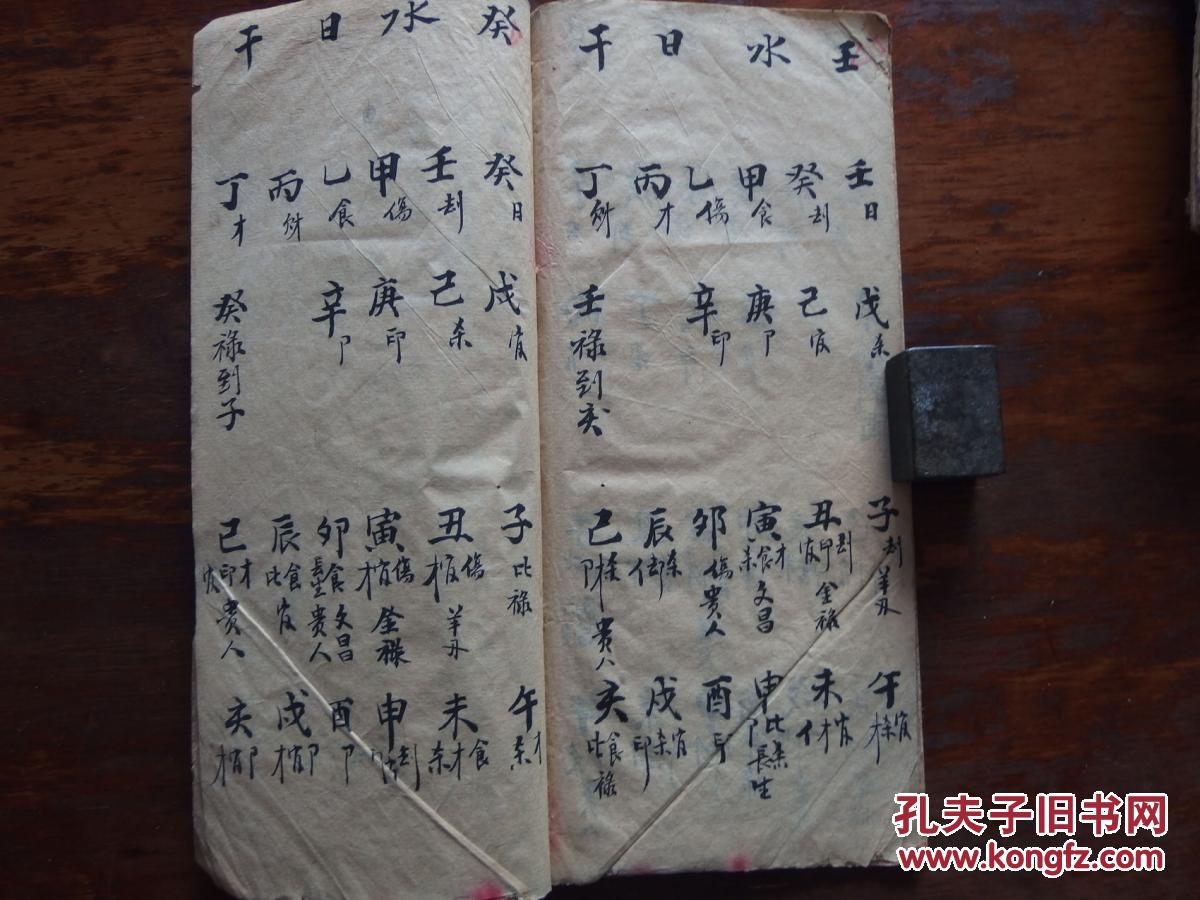 壬水日干
壬日 癸刦 甲食 乙傷 丙才 丁財
戊杀 己官 庚卩 辛印 壬禄到亥
子刦羊刃 丑刦卩官金禄 寅才食杀文昌 卯傷貴人 辰杀 巳貴人
午官 未官才 申比杀卩長生 酉印 戌官杀印 亥食比禄
癸水日干
癸日 壬刦 甲傷 乙食 丙財 丁才
戊官 己杀 庚印 辛卩 癸禄到子
子比禄 丑傷羊刃 寅傷官才金禄 卯食文昌長生貴人 辰食比官 巳才印官貴人
午才杀 未食才杀 申刦 酉卩 戌卩官才 亥卩官才
孔夫子旧书网
www.kongfz.com